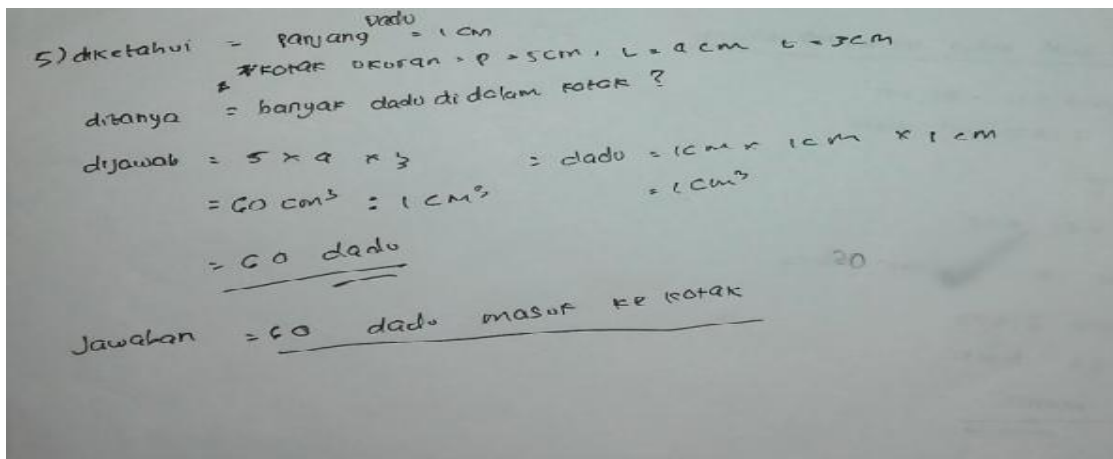 5) diketahui = panjang dado = 1 cm
* kotak ukuran = p = 5cm, L = 4 cm t = 3cm
ditanya = banyak dadu di dalam kotak ?
dijawab = 5 x 4 x 3 = dadu = 1cm x 1cm x 1 cm
= 60 cm³ : 1 cm³ = 1 cm³
= 60 dadu
20
Jawaban = 60 dadu masuk ke kotak